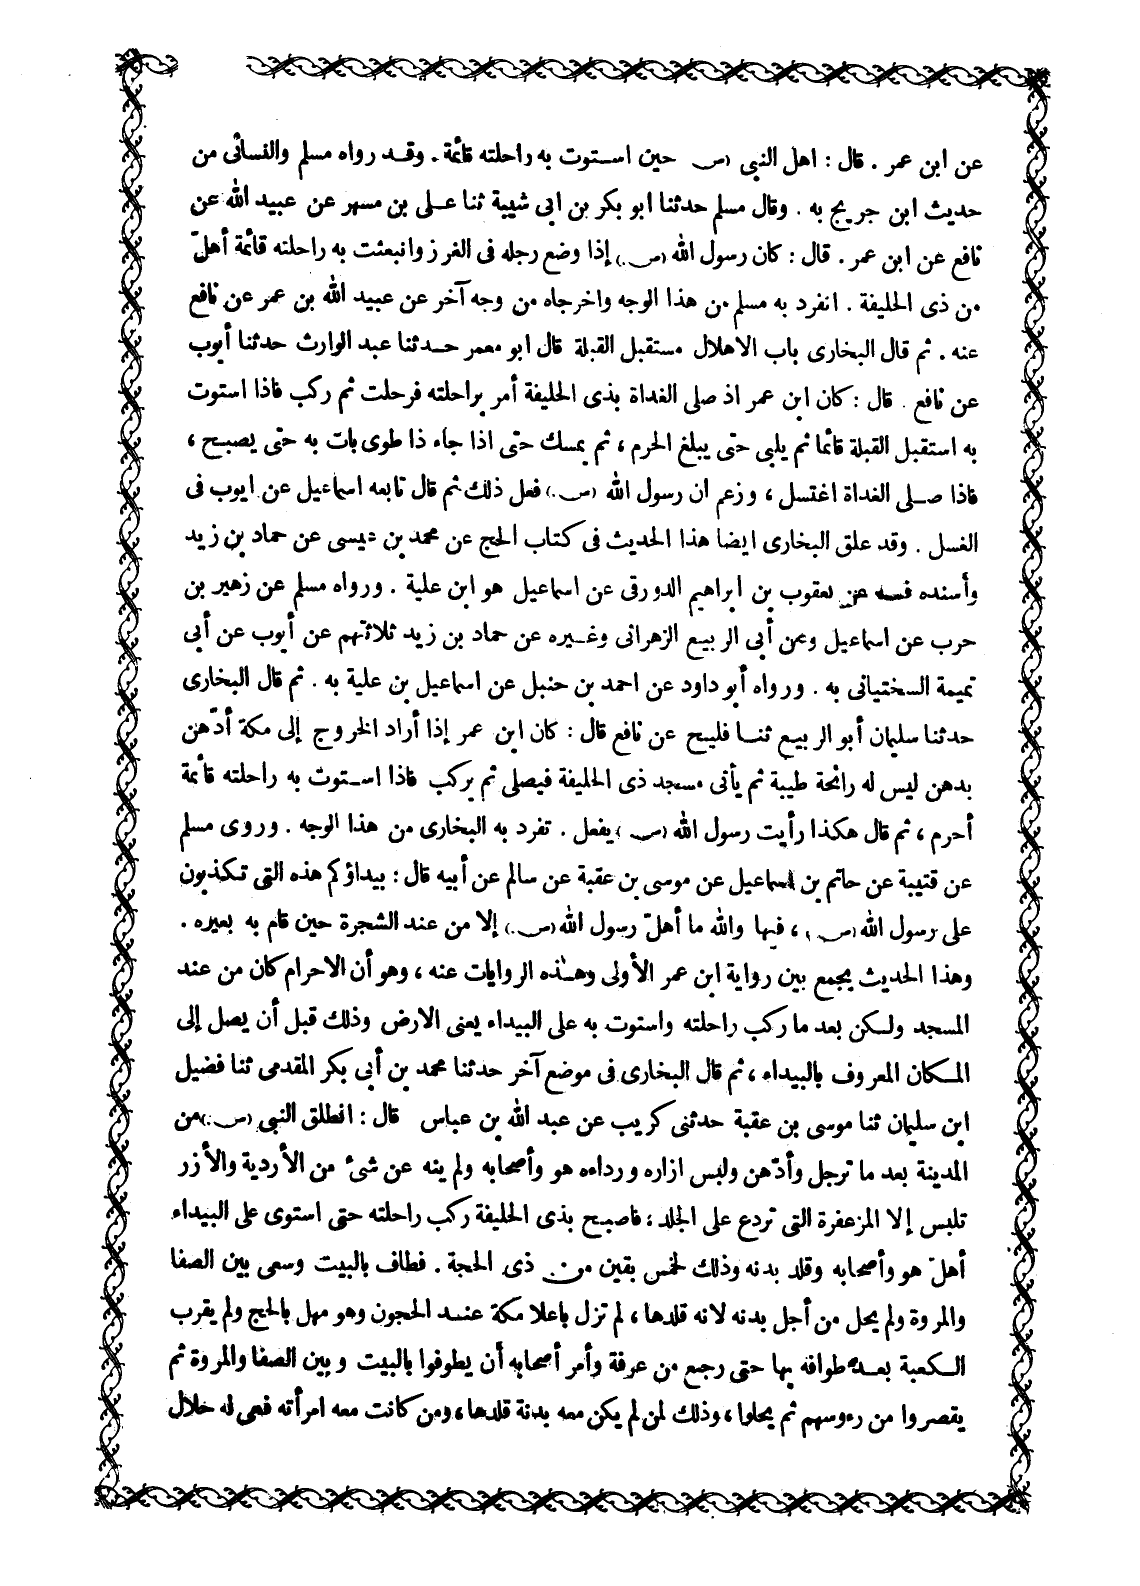 عن ابن عمر . قال : اهل النبى (ص) حين استوت به راحلته قائمة . وقد رواه مسلم والنسائى من
حديث ابن جريج به . وقال مسلم حدثنا ابو بكر بن ابى شيبة ثنا على بن مسهر عن عبيد الله عن
نافع عن ابن عمر . قال : كان رسول الله (ص.) إذا وضع رجله فى الغرز وانبعثت به راحلته قائمة أهلّ
من ذى الحليفة . انفرد به مسلم من هذا الوجه واخرجاه من وجه آخر عن عبيد الله بن عمر عن نافع
عنه . ثم قال البخارى باب الاهلال مستقبل القبلة قال ابو معمر حدثنا عبد الوارث حدثنا أيوب
عن نافع . قال : كان ابن عمر اذ صلى الغداة بذى الحليفة أمر براحلته فرحلت ثم ركب فاذا استوت
به استقبل القبلة قائما ثم يلبى حتى يبلغ الحرم ، ثم يمسك حتى اذا جاء ذا طوى بات به حتى يصبح ،
فاذا صلى الغداة اغتسل ، وزعم ان رسول الله (ص.) فعل ذلك ثم قال تابعه اسماعيل عن ايوب فى
الغسل . وقد علق البخارى ايضا هذا الحديث فى كتاب الحج عن محمد بن عيسى عن حماد بن زيد
وأسنده فيه عن يعقوب بن ابراهيم الدورقى عن اسماعيل هو ابن علية . ورواه مسلم عن زهير بن
حرب عن اسماعيل وعن أبى الربيع الزهرانى وغيره عن حماد بن زيد ثلاثتهم عن أيوب عن أبى
تميمة السختيانى به . ورواه أبو داود عن احمد بن حنبل عن اسماعيل بن علية به . ثم قال البخارى
حدثنا سليمان أبو الربيع ثنا فليح عن نافع قال : كان ابن عمر إذا أراد الخروج إلى مكة أدّهن
بدهن ليس له رائحة طيبة ثم يأتى مسجد ذى الحليفة فيصلى ثم يركب فاذا استوت به راحلته قائمة
أحرم ، ثم قال هكذا رأيت رسول الله (ص) يفعل . تفرد به البخارى من هذا الوجه . وروى مسلم
عن قتيبة عن حاتم بن اسماعيل عن موسى بن عقبة عن سالم عن أبيه قال : بيداؤكم هذه التى تكذبون
على رسول الله (ص) ، فيها والله ما أهلّ رسول الله (ص.) إلا من عند الشجرة حين قام به بعيره .
وهذا الحديث يجمع بين رواية ابن عمر الأولى وهذه الروايات عنه ، وهو أن الاحرام كان من عند
المسجد ولكن بعد ما ركب راحلته واستوت به على البيداء يعنى الارض وذلك قبل أن يصل إلى
المكان المعروف بالبيداء ، ثم قال البخارى فى موضع آخر حدثنا محمد بن أبى بكر المقدمى ثنا فضيل
ابن سليمان ثنا موسى بن عقبة حدثنى كريب عن عبد الله بن عباس قال : انطلق النبى (ص.) من
المدينة بعد ما ترجل وأدّهن ولبس ازاره ورداءه هو وأصحابه ولم ينه عن شئ من الأردية والأزر
تلبس إلا المزعفرة التى تردع على الجلد ؛ فاصبح بذى الحليفة ركب راحلته حتى استوى على البيداء
أهلّ هو وأصحابه وقلد بدنه وذلك لخمس بقين من ذى الحجة . فطاف بالبيت وسعى بين الصفا
والمروة ولم يحل من أجل بدنه لانه قلدها ، لم تزل باعلا مكة عند الحجون وهو مهل بالحج ولم يقرب
الكعبة بعد طوافه بها حتى رجع من عرفة وأمر أصحابه أن يطوفوا بالبيت وبين الصفا والمروة ثم
يقصروا من رءوسهم ثم يحلوا ، وذلك لمن لم يكن معه بدنة قلدها ، ومن كانت معه امرأته فهى له حلال